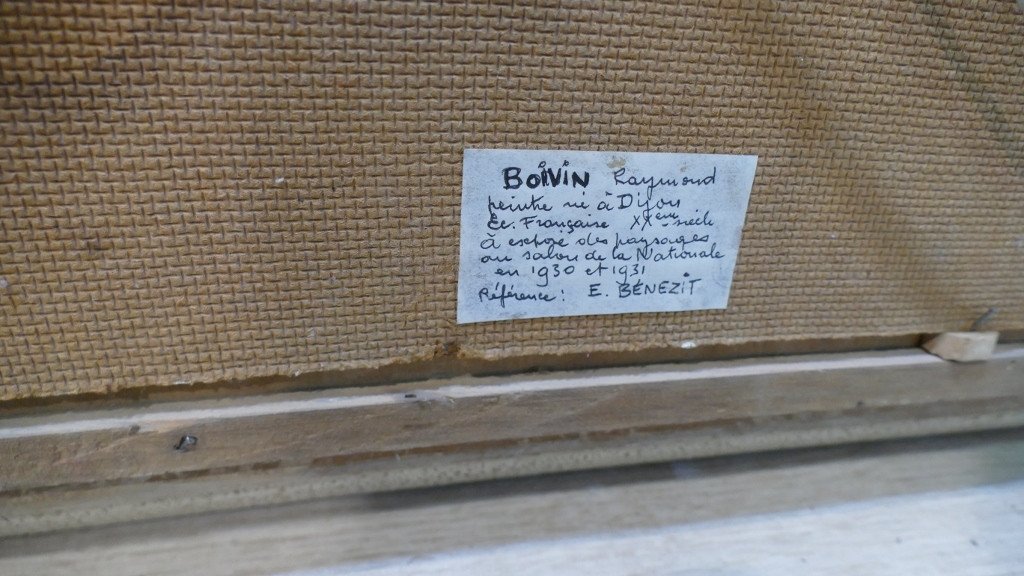 BOiViN Raymond
peintre né à Dijon
Ec. Française XXème siècle
à exposé des paysages
au salon de la Nationale
en 1930 et 1931
Référence : E. BÉNÉZiT